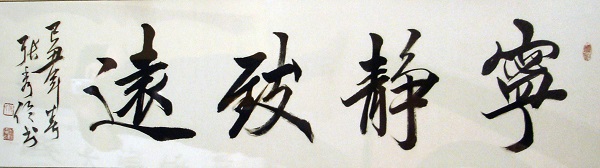 寧靜致遠
己丑年春
張秀偉书